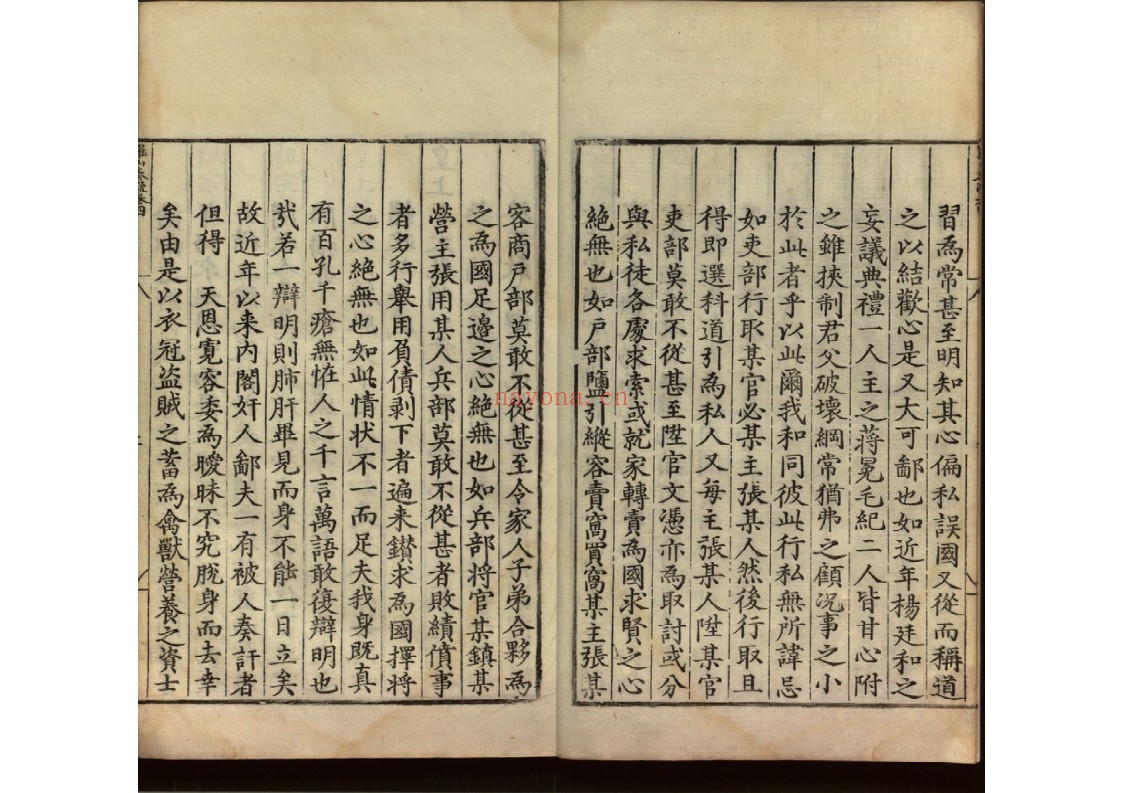 習為常甚至明知其心偏私誤國又從而稱道
之以結歡心是又大可鄙也如近年楊廷和之
妄議典禮一人主之蔣冕毛紀二人皆甘心附
之雖挾制君父破壞綱常猶弗之顧況事之小
於此者乎以此爾我和同彼此行私無所諱忌
如吏部行取某官必某主張某人然後行取且
得即選科道引為私人又每主張某人陞某官
吏部莫敢不從甚至陞官文憑亦為取討或分
與私徒各處求索或就家轉賣為國求賢之心
絕無也如戶部鹽引縱容賣窩買窩某主張某
客商戶部莫敢不從甚至令家人子弟合夥為
之為國足邊之心絕無也如兵部将官某鎮某
營主張用某人兵部莫敢不從甚者敗績僨事
者多行舉用負債剥下者遍来鑚求為國擇將
之心絕無也如此情状不一而足夫我身既真
有百孔千瘡無恠人之千言萬語敢復辯明也
㢤若一辯明則肺肝畢見而身不能一日立矣
故近年以来内閣奸人鄙夫一有被人奏訐者
但得 天恩寛容委為曖昧不究脫身而去幸
矣由是以衣冠盗賊之蓄為禽獸營養之資士
nayona.cn